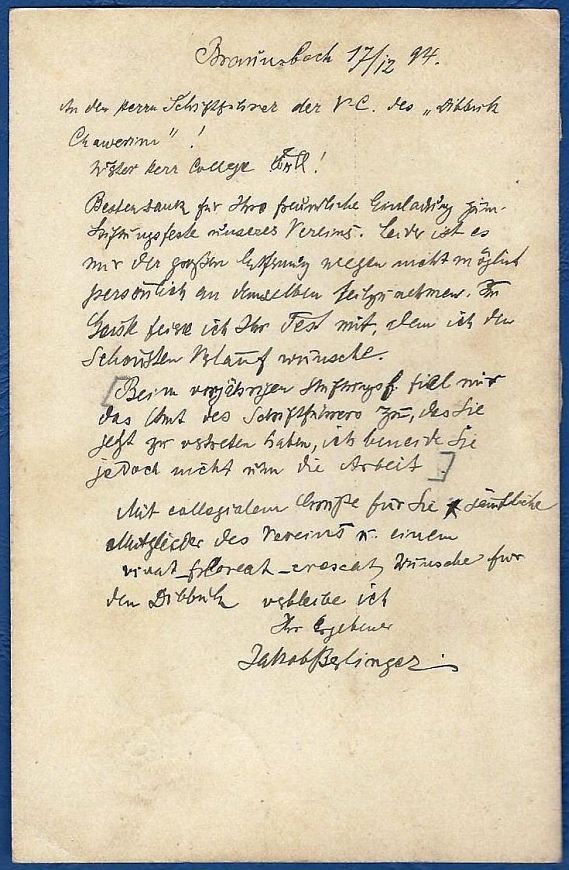 Braunsbach 17/12 94.
An den Herrn Schriftführer der V.C. des „Dibbuk
Chawerim" !
Werter Herr College !
Besten Dank für Ihre freundliche Einladung zum
Stiftungsfeste unseres Vereins. Leider ist es
mir der großen Entfernung wegen nicht möglich
persönlich an demselben teilzunehmen. Im
Geiste feiere ich Ihr Fest mit, dem ich den
schönsten Verlauf wünsche.
[Beim vorjährigen Stiftungsf. fiel mir
das Amt des Schriftführers zu, das Sie
jetzt zu vertreten haben, ich beneide Sie
jedoch nicht um die Arbeit.]
Mit collegialem Gruße für Sie & sämtliche
Mitglieder des Vereins u. einem
vivat floreat crescat Wunsche für
den Dibbuk verbleibe ich
Ihr Ergebener
Jakob Berlinger